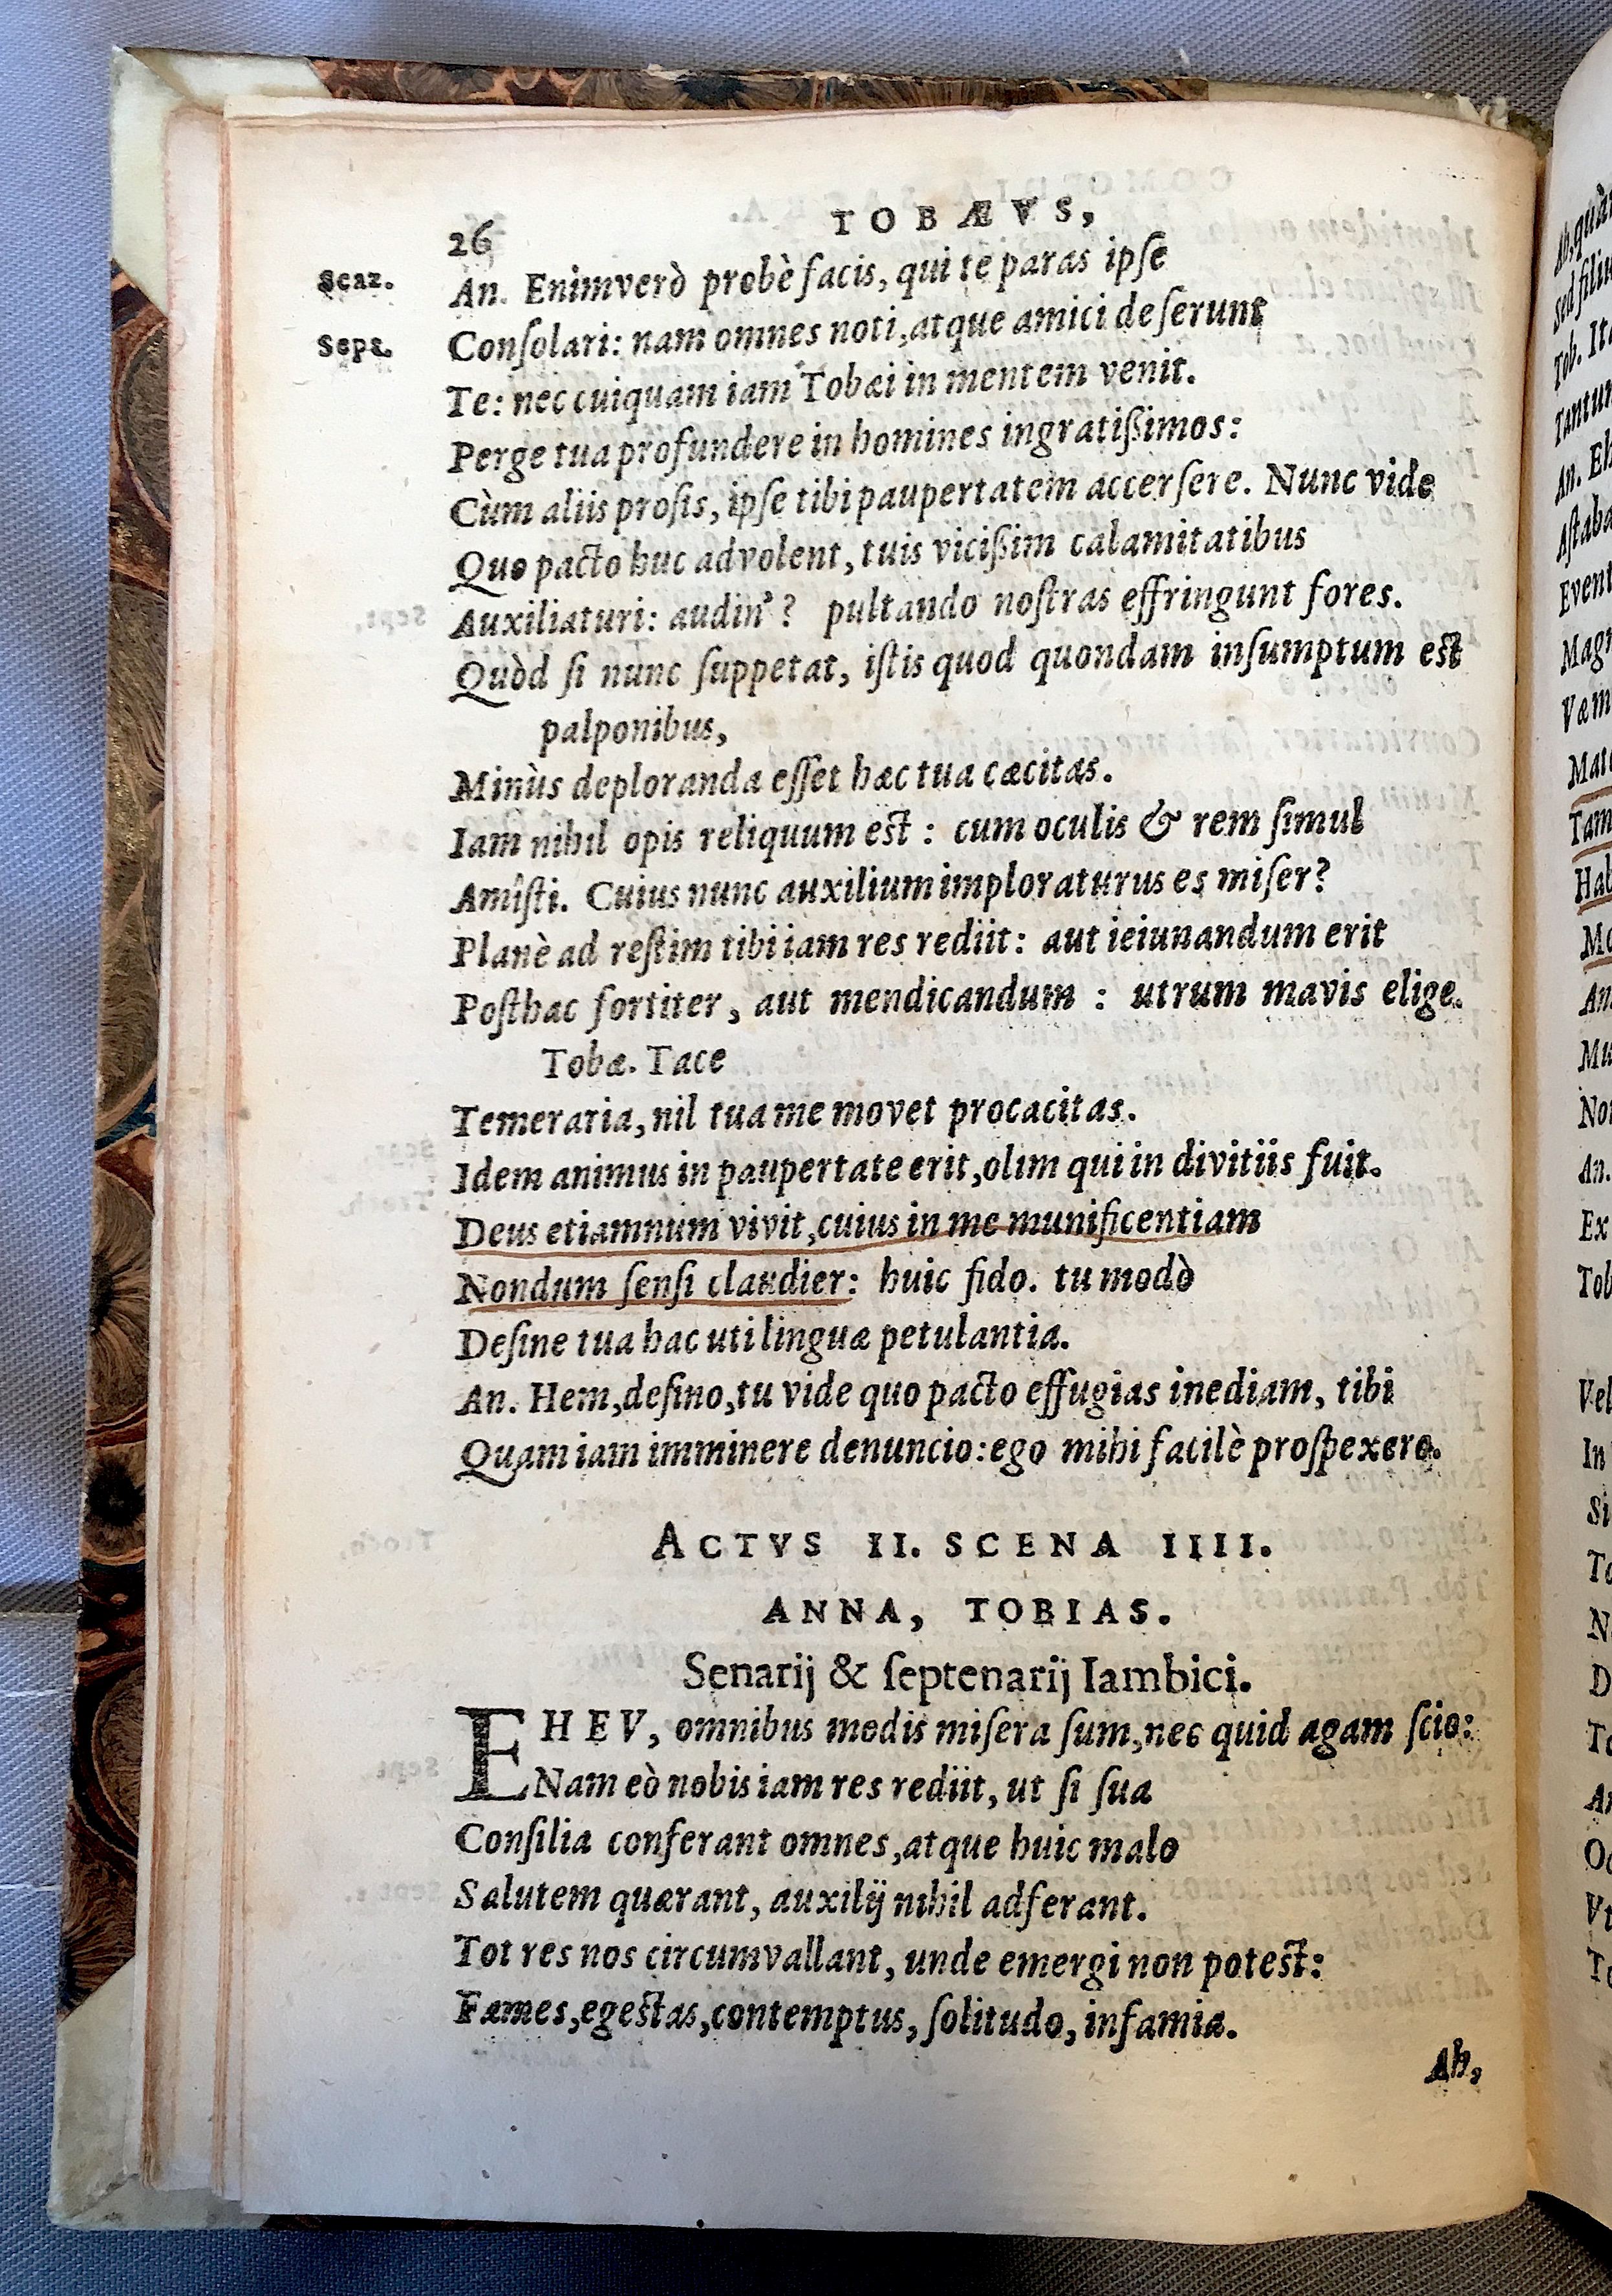 26 TOBÆVS,
Scaz. An. Enimverò probè facis, qui te paras ipſe
Sept. Conſolari: nam omnes noti, atque amici deſerunt
Te: nec cuiquam iam Tobæi in mentem venit.
Perge tua profundere in homines ingratiſsimos:
Cùm aliis proſis, ipſe tibi paupertatem accerſere. Nunc vide
Quo pacto huc advolent, tuis viciſsim calamitatibus
Auxiliaturi: audin'? pultando noſtras effringunt fores.
Quòd ſi nunc ſuppetat, iſtis quod quondam inſumptum eſt
palponibus,
Minùs deploranda eſſet hæc tua cæcitas.
Iam nihil opis reliquum eſt: cum oculis & rem ſimul
Amîſti. Cuius nunc auxilium imploraturus es miſer?
Planè ad reſtim tibi iam res rediit: aut ieiunandum erit
Poſthac fortiter, aut mendicandum: utrum mavis elige.
Tobæ. Tace
Temeraria, nil tua me movet procacitas.
Idem animus in paupertate erit, olim qui in divitiis fuit.
Deus etiamnum vivit, cuius in me munificentiam
Nondum ſenſi claudier: huic fido. tu modò
Deſine tua hac uti linguæ petulantia.
An. Hem, deſino, tu vide quo pacto effugias inediam, tibi
Quam iam imminere denuncio: ego mihi facilè proſpexero.
ACTVS II. SCENA IIII.
ANNA, TOBIAS.
Senarij & ſeptenarij Iambici.
EHEV, omnibus modis miſera ſum, nec quid agam ſcio:
Nam eò nobis iam res rediit, ut ſi ſua
Conſilia conferant omnes, atque huic malo
Salutem quærant, auxilij nihil adferant.
Tot res nos circumvallant, unde emergi non poteſt:
Fames, egeſtas, contemptus, ſolitudo, infamia.
Ah,